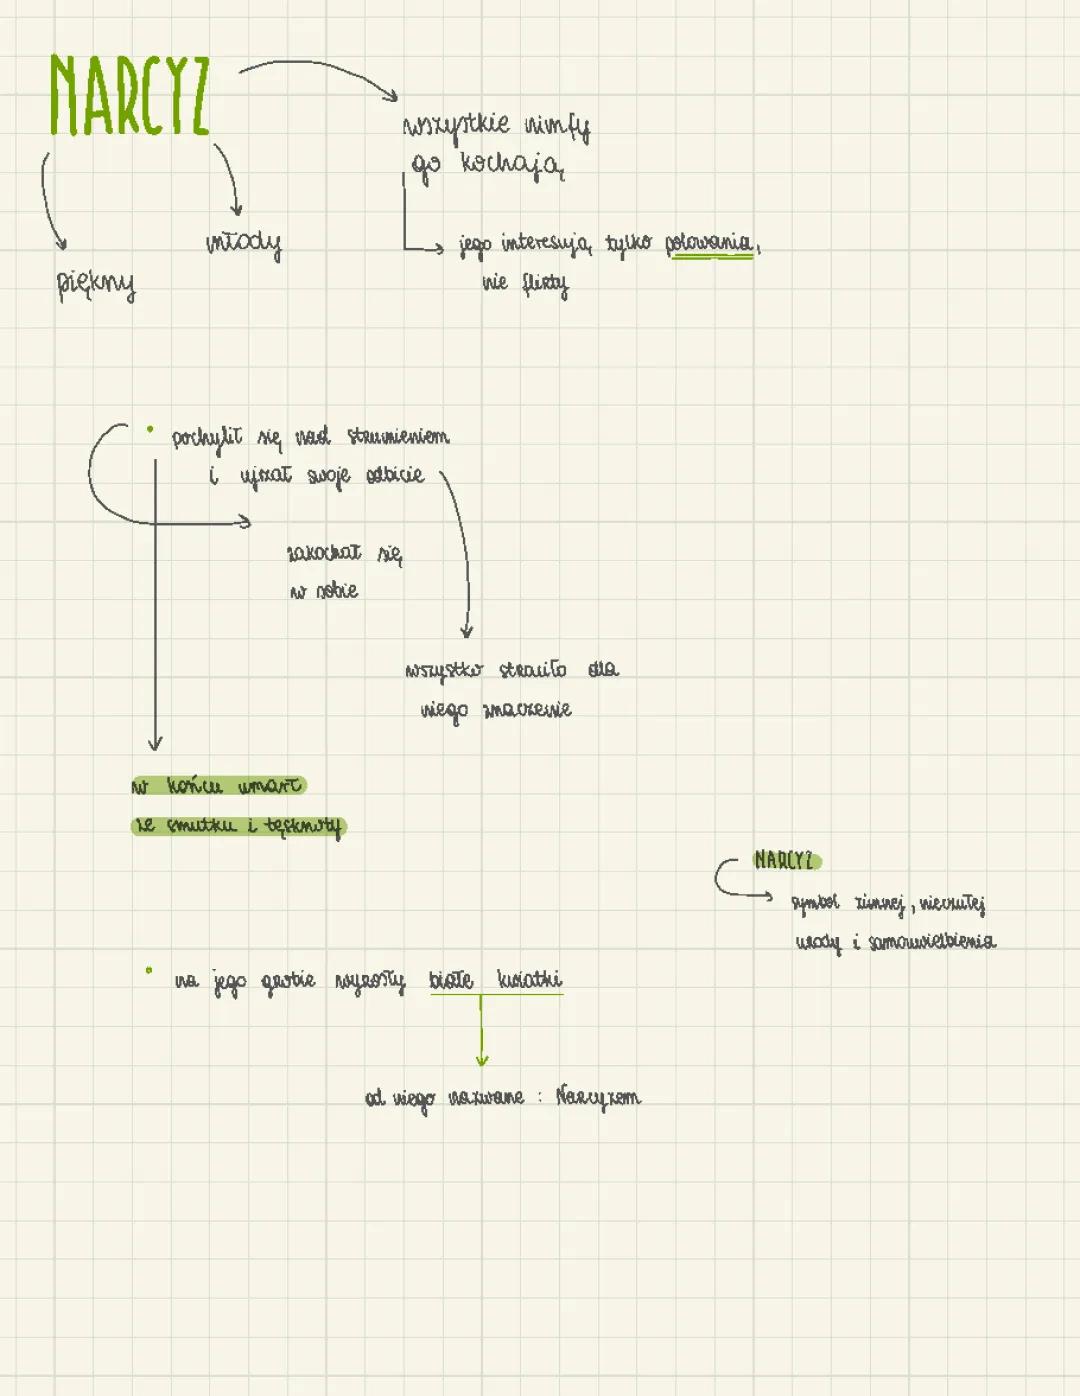 NARCYZ
wszystkie nimfy
go kochają
młody
jego interesują tylko polowania,
piękny
nie flirty
• pochylił się nad strumieniem
i ujrzał swoje odbicie
zakochał się
w sobie
wszystko straciło dla
niego znaczenie
w końcu umarł
ze smutku i tęsknoty
NARCYZ
symbol zimnej, nieczułej
urody i samouwielbienia
• na jego grobie wyrosły białe kwiatki
od niego nazwane : Narcyzem